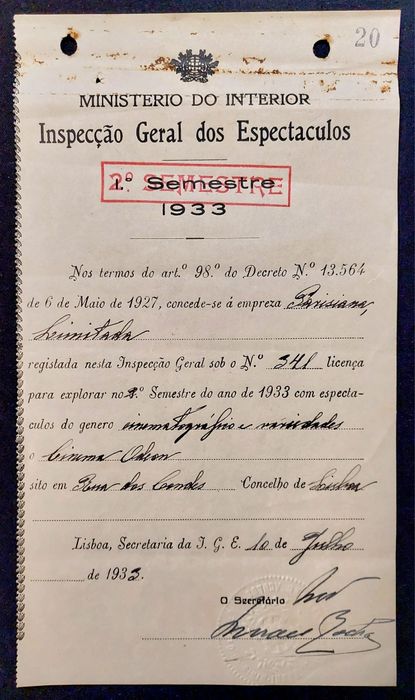 20
MINISTERIO DO INTERIOR
Inspecção Geral dos Espectaculos
2º SEMESTRE
1.º Semestre
1933
Nos termos do art.º 98.º do Decreto N.º 13.564
de 6 de Maio de 1927, concede-se á empreza Parisiana,
Limitada
registada nesta Inspecção Geral sob o N.º 341 licença
para explorar no 2.º Semestre do ano de 1933 com especta-
culos do genero cinematográfico e variedades
o Cinema Odeon
sito em Rua dos Condes Concelho de Lisboa
Lisboa, Secretaria da I. G. E. 10 de Julho
de 1933.
O Secretário